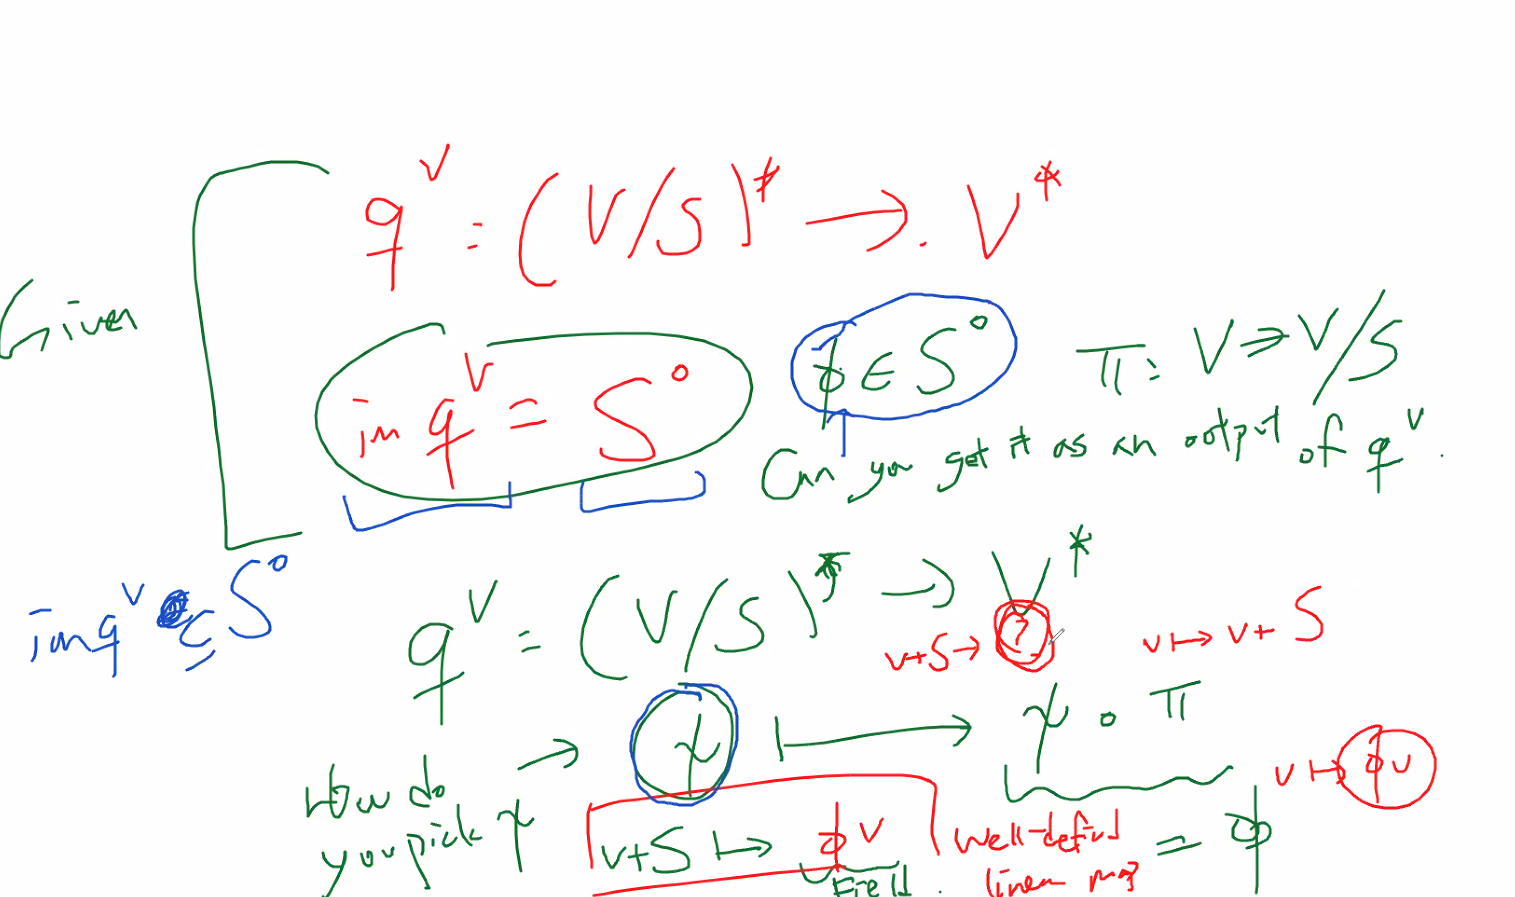 q^∨ : (V/S)^* → . V^*
Given
im q^∨ = S° φ ∈ S° π : V → V/S
Can you get it as an output of q^∨ .
im q^∨ ⊆ S°
q^∨ = (V/S)^* → V^*
v+S → ? v ↦ v + S
→ χ ↦ χ ∘ π
How do you pick χ
v ↦ φv
v+S ↦ φv
Field .
Well-defined linear map
= φ